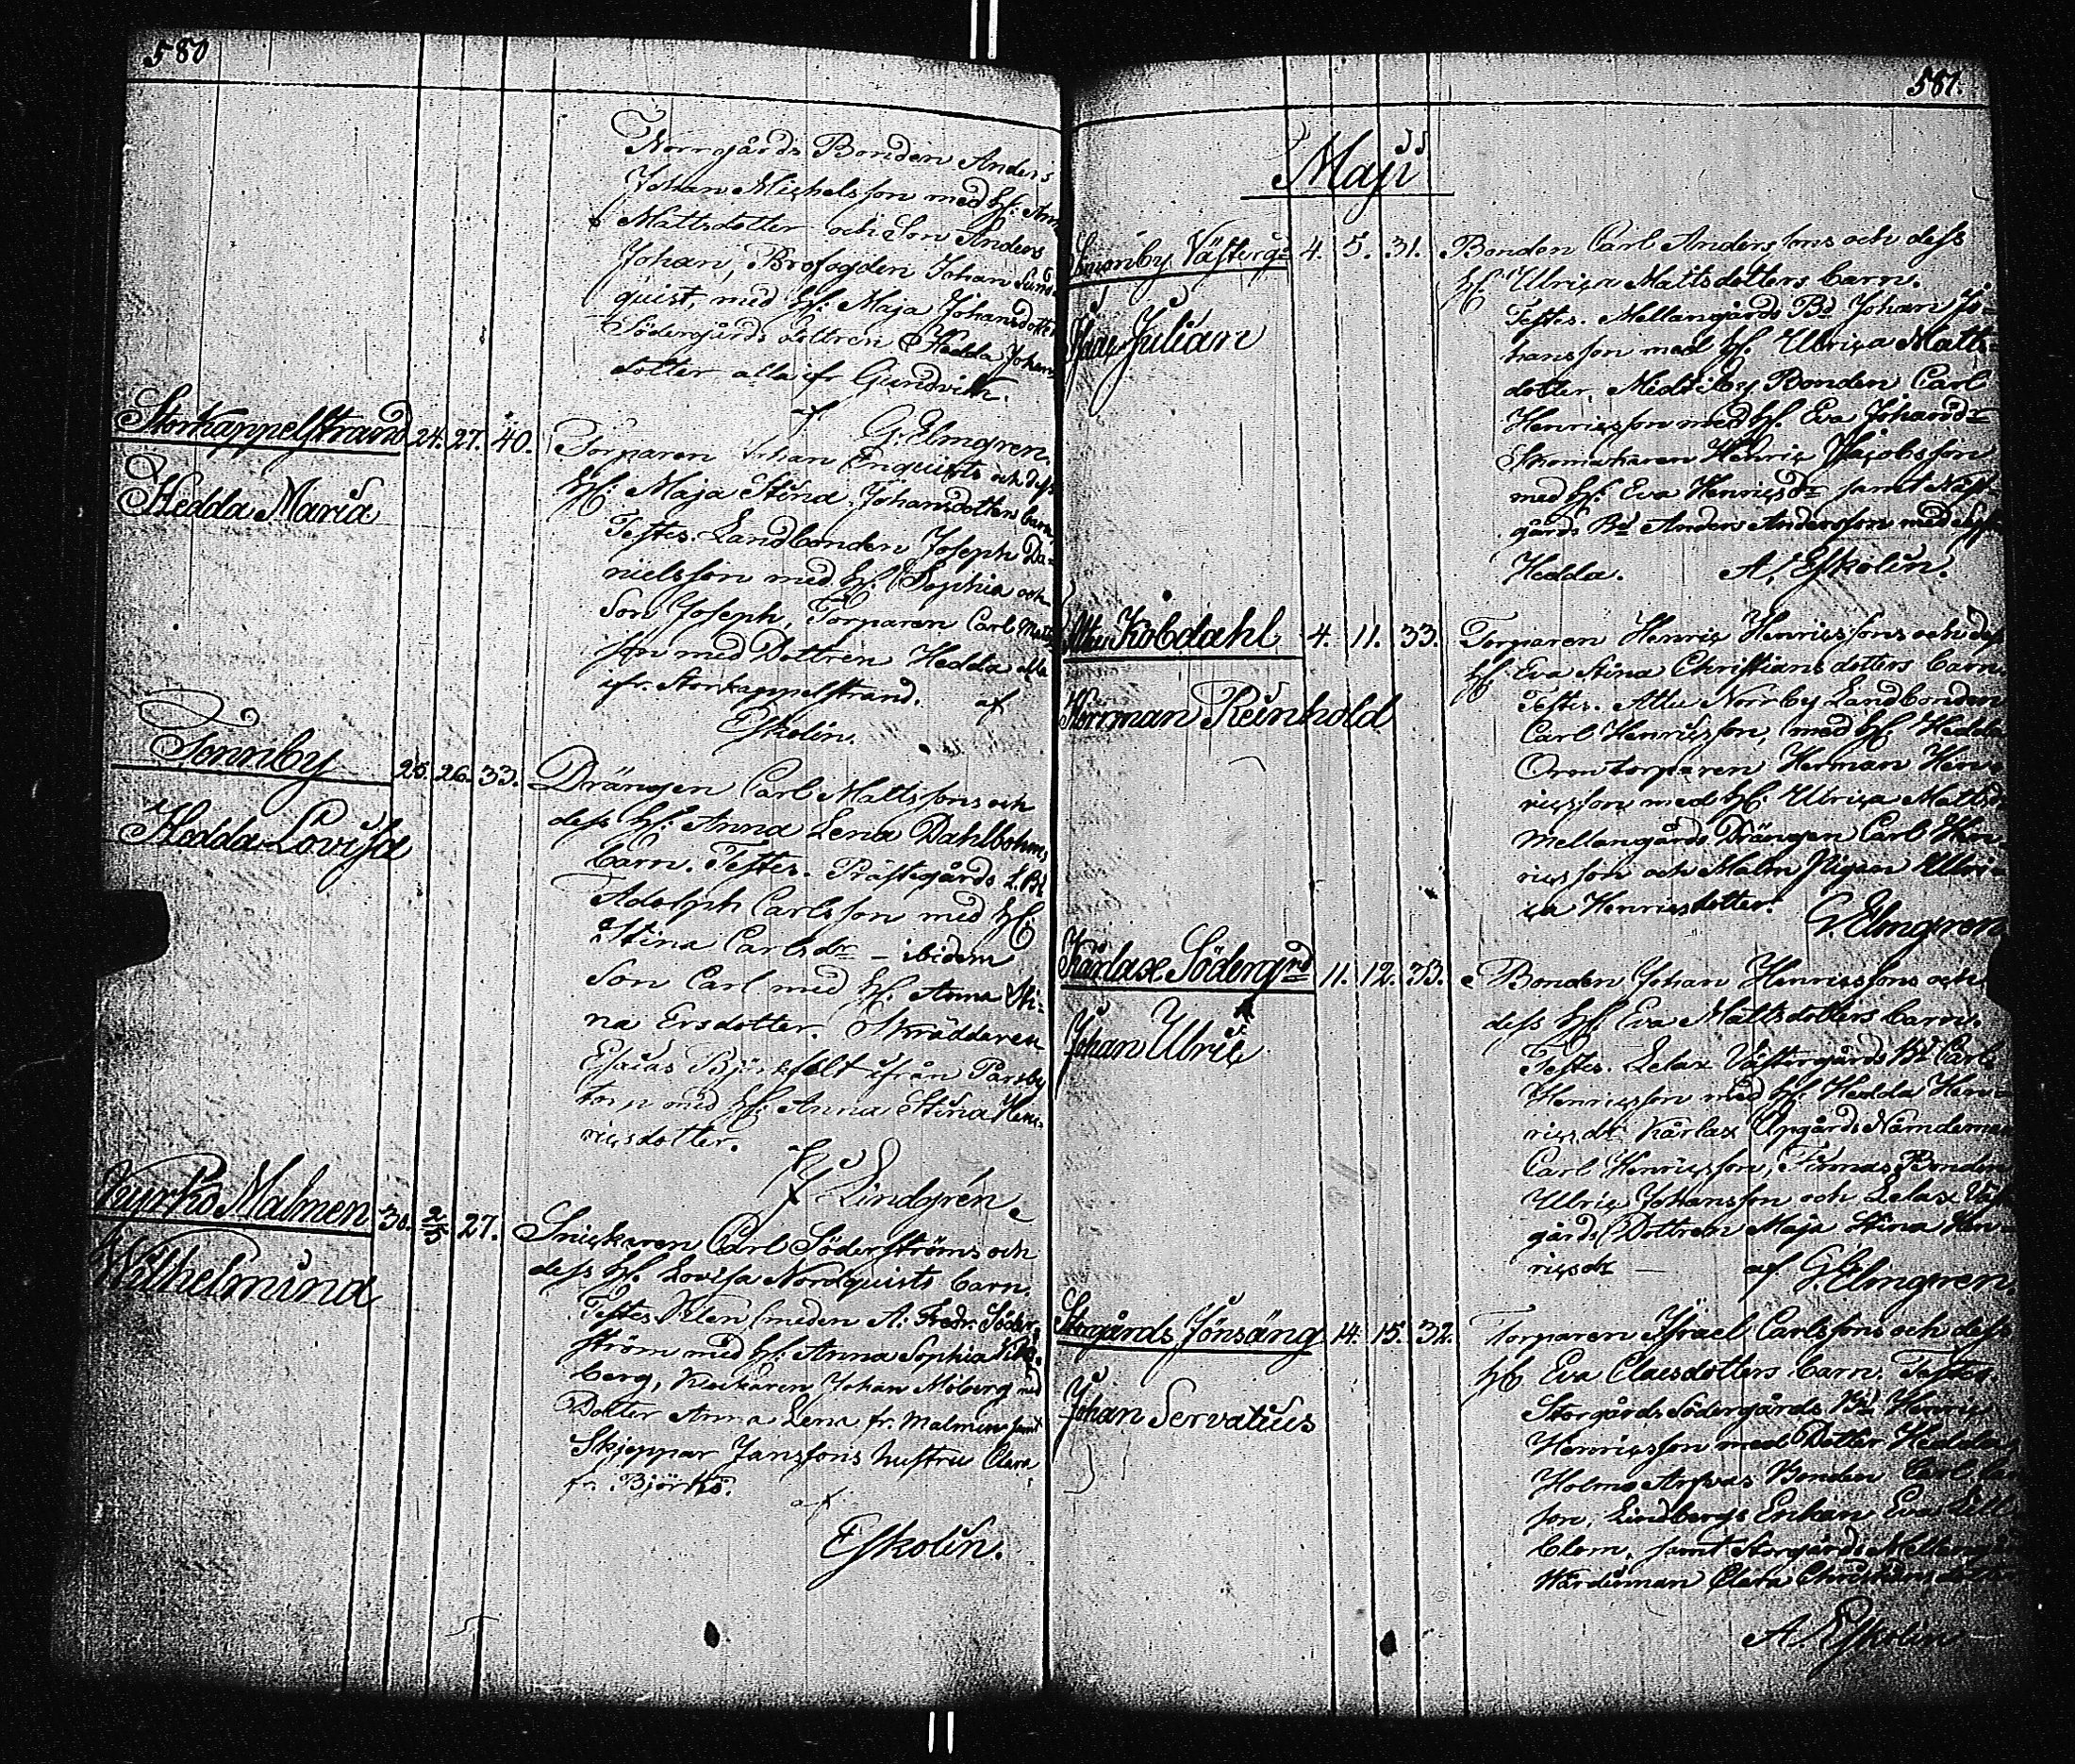 580
Norrgårds Bonden Anders
Johan Michelsson med H: Anna
Mattsdotter och Son Anders
Johan, Brofogden Johan Sund-
quist, med H: Maja Johansdotter
Södergårds dottren Hedda Johans
dotter alla ifr Gundvik.
af G. Elmgren.
Storkappelstrand 24. 27. 40. Torparen Johan Enquists och dess
H: Maja Stina Johansdotters barn.
Hedda Maria
Testes. Landbonden Joseph Da-
nielsson med H: Sophia och
Son Joseph, Torparen Carl Matts
son med Dottren Hedda alla
ifr. Storkappelstrand. af
Eskolin.
Tonnby 25. 26. 33. Drängen Carl Mattssons och
dess H: Anna Lena Dahlbohms
Hedda Lovisa
barn. Testes. Prästegårds L. Bd
Adolph Carlsson med H:
Stina Carlsdr – ibidem
Son Carl med H: Anna Sti-
na Ersdotter. Skräddaren
Esaias Björkfelt ifrån Pärsby
torp med H: Anna Stina Hen-
ricsdotter.
af Lindgrén
Kyrko Malmen 30. 2/5 27. Snickaren Carl Söderströms och
dess H: Lovisa Nordquists barn.
Wilhelmina
Testes. Klensmeden A: Fredr. Söder-
ström med H: Anna Sophia
berg, Johan Moberg med
Dotter Anna Lena fr. Malmen samt
Skjeppar Jansons hustru Clara
fr. Björkö.
af
Eskolin.
581.
Maji
Västergd 4. 5. 31. Bonden Carl Anderssons och dess
H: Ulrica Mattsdotters barn.
Isaac Julian
Testes. Mellangårds Bd Johan Jo-
hansson med H: Ulrica Matts-
dotter. Bonden Carl
Henricsson med H: Eva Johansdr
Skomakaren Henric Jacobsson
med H: Eva Henricsdr samt Näst-
gårds Bd Anders Andersson med
Hedda. A. Eskolin.
Kobdahl 4. 11. 33. Torparen Henric Henricssons och dess
H: Eva Stina Christiansdotters barn
Herrman Reinhold
Testes. Norrby Landbonden
Carl Henricsson, med H: Hedda
Orrntorparen Herman Hen-
ricsson med H: Ulrica Mattsdr
Mellangårds Drängen Carl Hen-
ricsson och Malm Pigan Ulri-
ca Henricsdotter. G. Elmgren
Kärlax Södergrd 11. 12. 33. Bonden Johan Henricssons och
dess H: Eva Mattsdotters barn.
Johan Ulric
Testes. Lelax Västergårds Bd Carl
Henricsson med H: Hedda Hen-
ricsdr Kärlax Opgårds Nämdeman
Carl Henricsson, Bonden
Ulric Johansson och Lelax Väst
gårds Dottren Maja Stina Hen-
ricsdr – af G. Elmgren.
Storgårds Jönsäng 14. 15. 32. Torparen Israel Carlssons och dess
H: Eva Claesdotters barn. Testes.
Johan Servatius
Storgårds Södergårds Bd Henric
Henricsson med Dotter Hedda
Holms Bonden Carl
son, Lindbergs Enkan Eva
Clem, samt Storgårds
Wärdinnan Clara
A. Eskolin